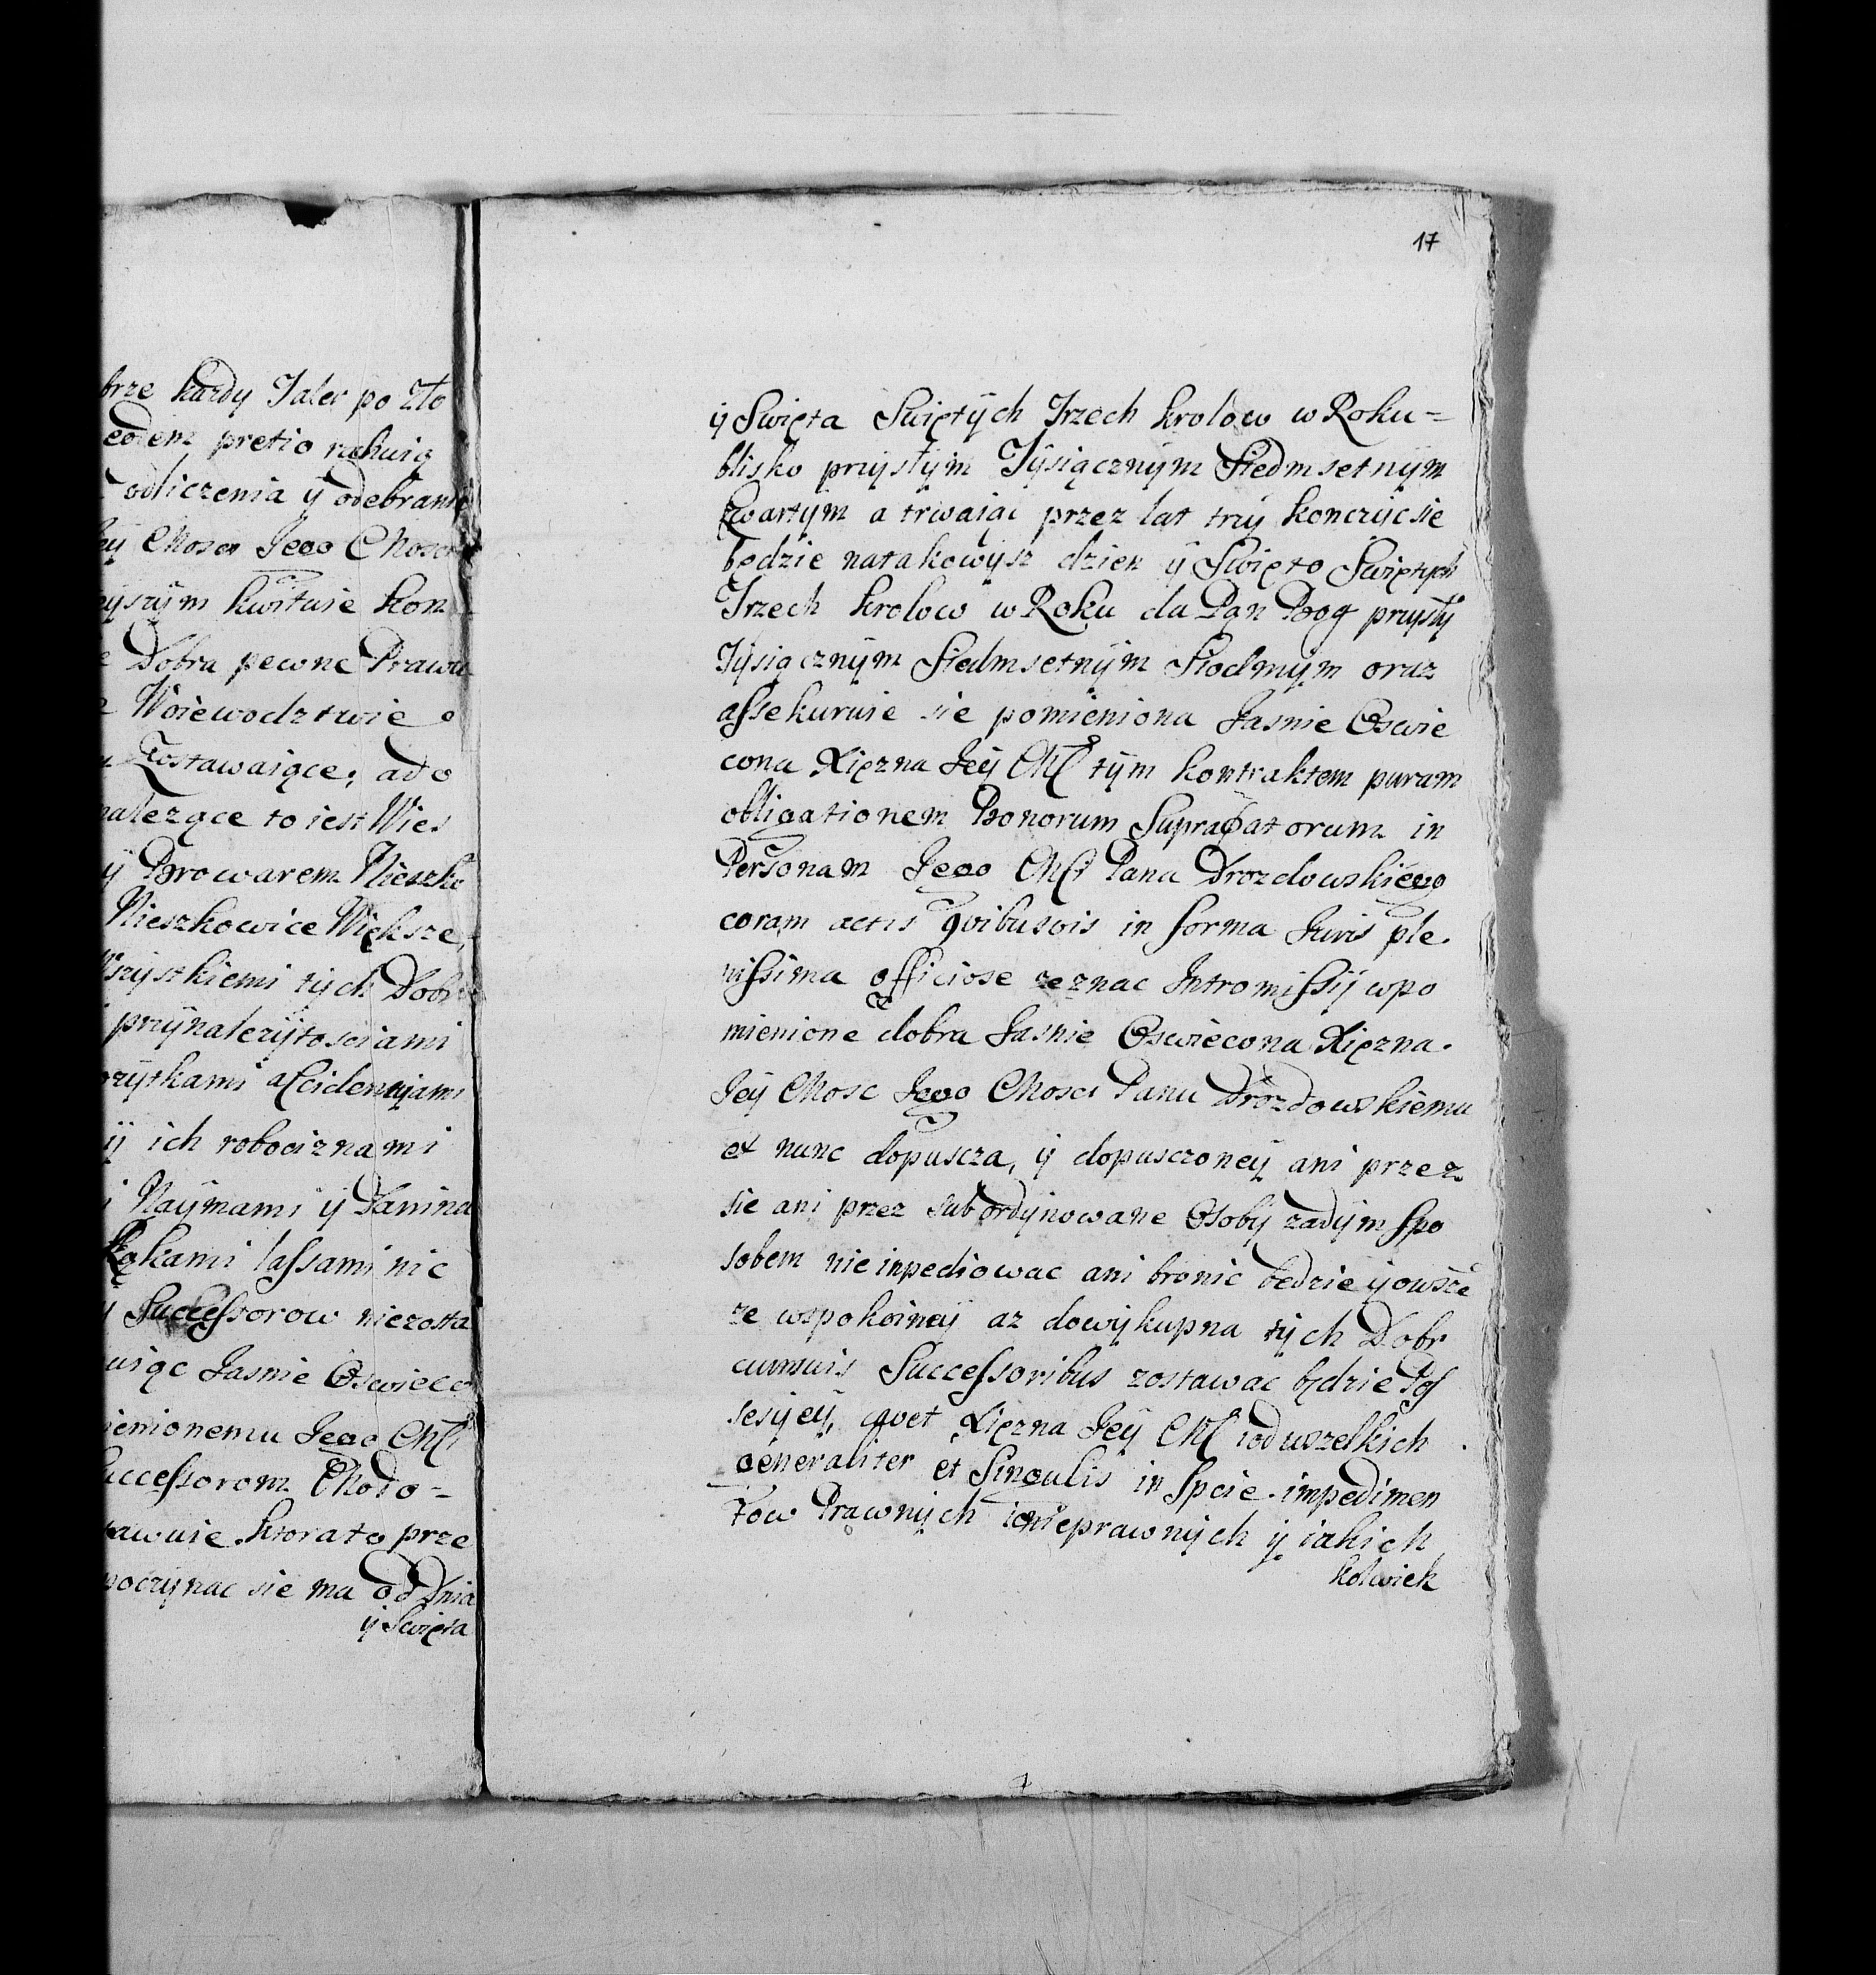 brze kazdy Taler po Zło
eodem pretio rachuią
odliczenia ÿ odebrania
Mosci Jego Mosci
kwituie kon
Dobra pewne Prawa
Woiewodztwie
Zostawaiące, ado
nalezące to iest Wies
ÿ Browarem Nieszko
Nieszkowice Większe,
Wszÿstkiemi tÿch Dobr
przÿnalezÿtosciami
ozÿtkami accidensÿami
ich robociznami
Naÿmami ÿ Danina
Łąkami lassami nic
Successorow niezosta
uiąc Jasnie Oswieco
ienionemu Jego Msći
uccessorom
tawuie. ktorato prze
poczÿnac sie ma od Dnia
ÿ Swięta
17
ÿ Swięta Swiętÿch Trzech krolow w Roku =
blisko przÿsłÿm Tÿsiącznÿm Siedmsetnÿm
Czwartÿm a trwaiąc przez lat trzÿ konczÿc sie
będzie natakowÿsz dzien ÿ Swięto Swiętÿch
Trzech krolow w Roku da Pan Bog przÿsłÿ
Tÿsiącznÿm Siedmsetnÿm Siodmÿm oraz
assekuruie sie pomieniona Jasnie Oswie
cona Xięzna Jeÿ Mść tÿm kontraktem puram
obligationem Bonorum Supradatorum in
Personam Jego Msći Pana Drozdowskiego
coram actis qvibusvis in forma Juris ple.
nissima officiose zeznac Intromissÿ wpo
mienione dobra Jasnie Oswiecona Xięzna.
Jeÿ Mosc Jego Mosci Panu Drozdowskiemu
ex nunc dopuscza, ÿ dopusczoneÿ ani przez
sie ani przez subordÿnowane Osobÿ zadÿm spo
sobem nie inpediowac ani bronic będzie ÿ owsze
ze wspokoineÿ az do wÿkupna tÿch Dobr
cumsuis Successoribus zostawac będzie Pos
sesÿeÿ, Xięzna Jeÿ Mść iod wszelkich
generaliter et Singulis in Spcie. impedimen
tow Prawnÿch ionieprawnÿch ÿ iakich
kolwiek